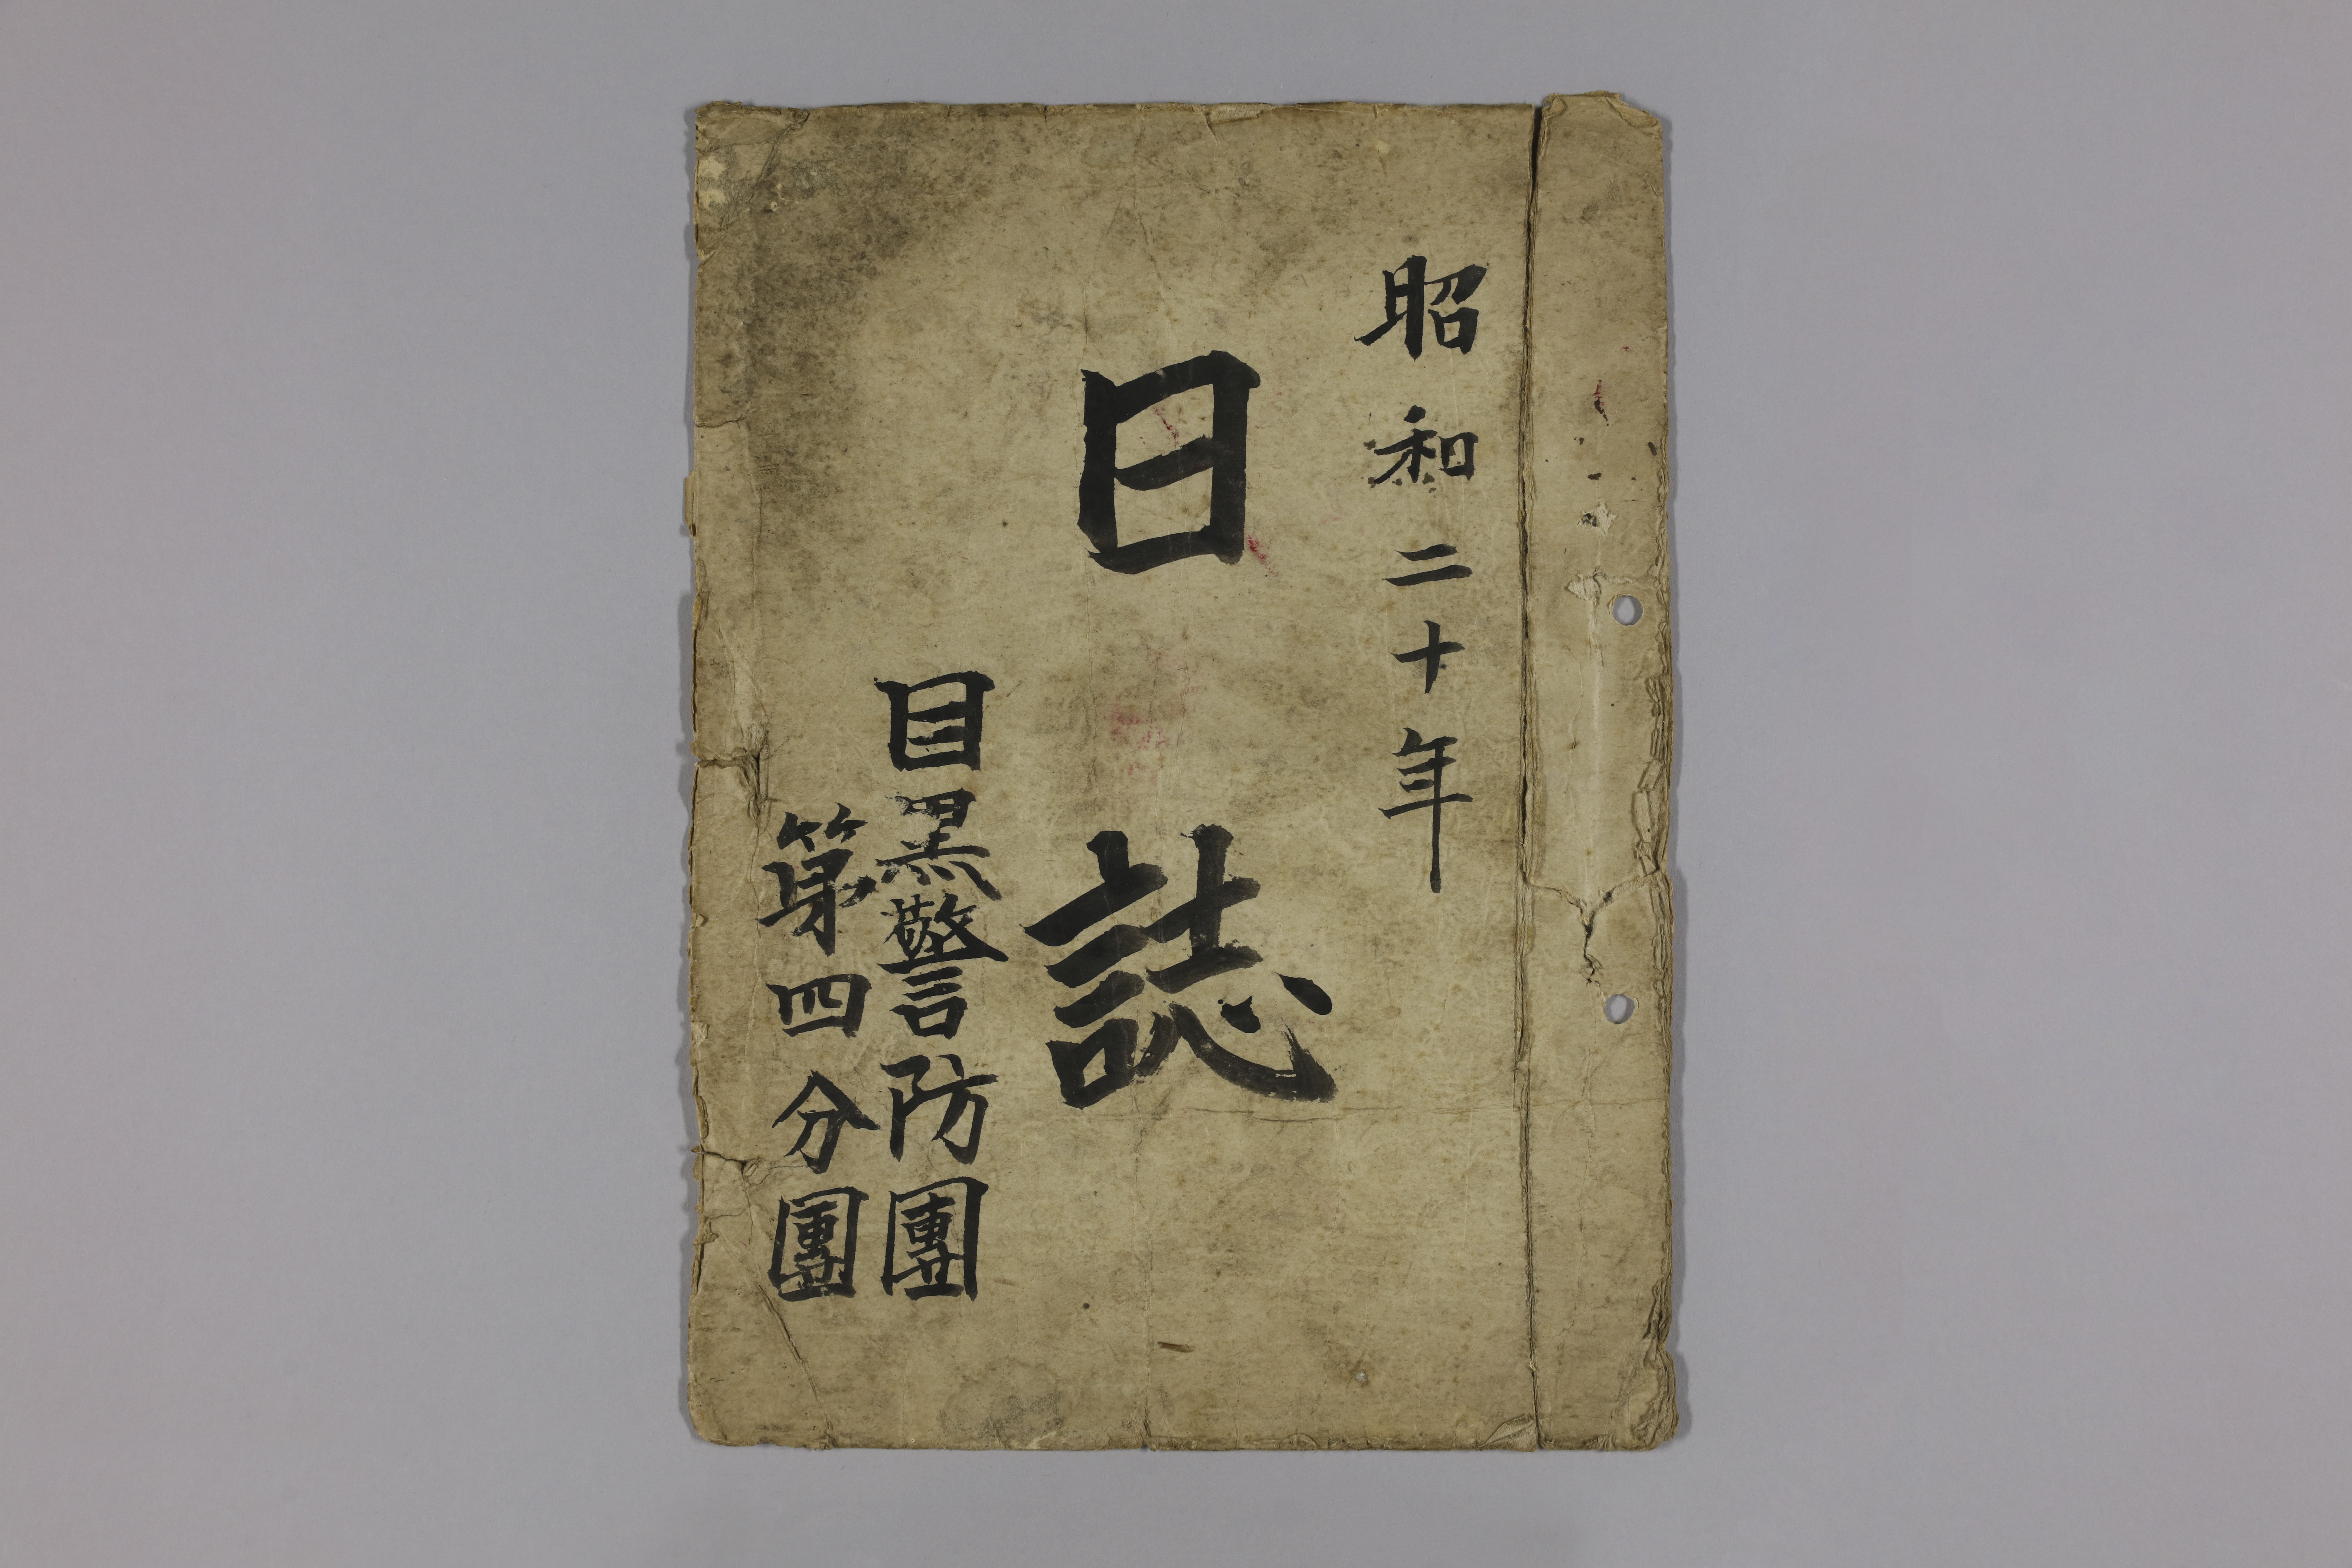 昭和二十年
日誌
目黒警防團
第四分團